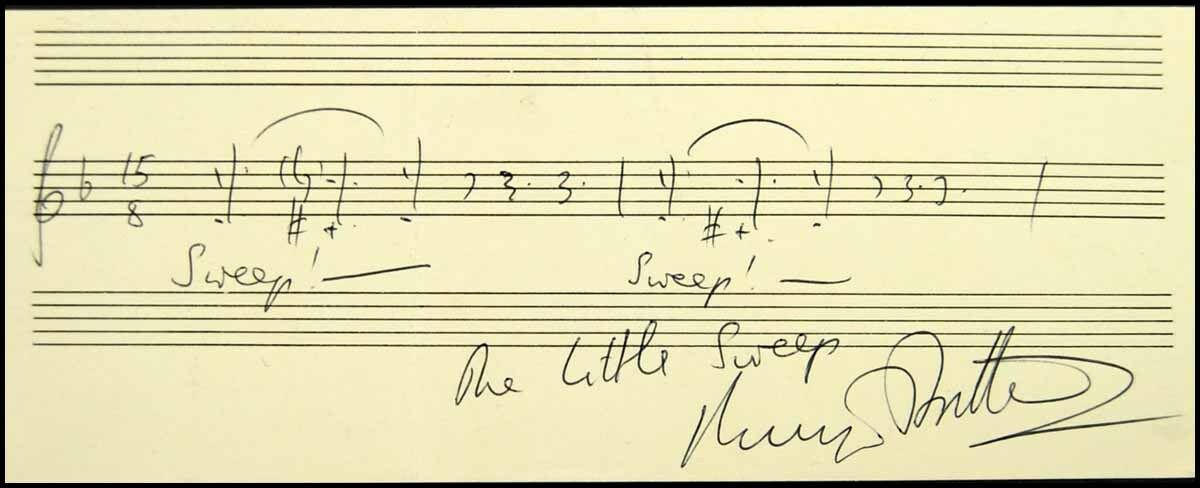 15
8
Sweep! Sweep!
The Little Sweep
Benjamin Britten